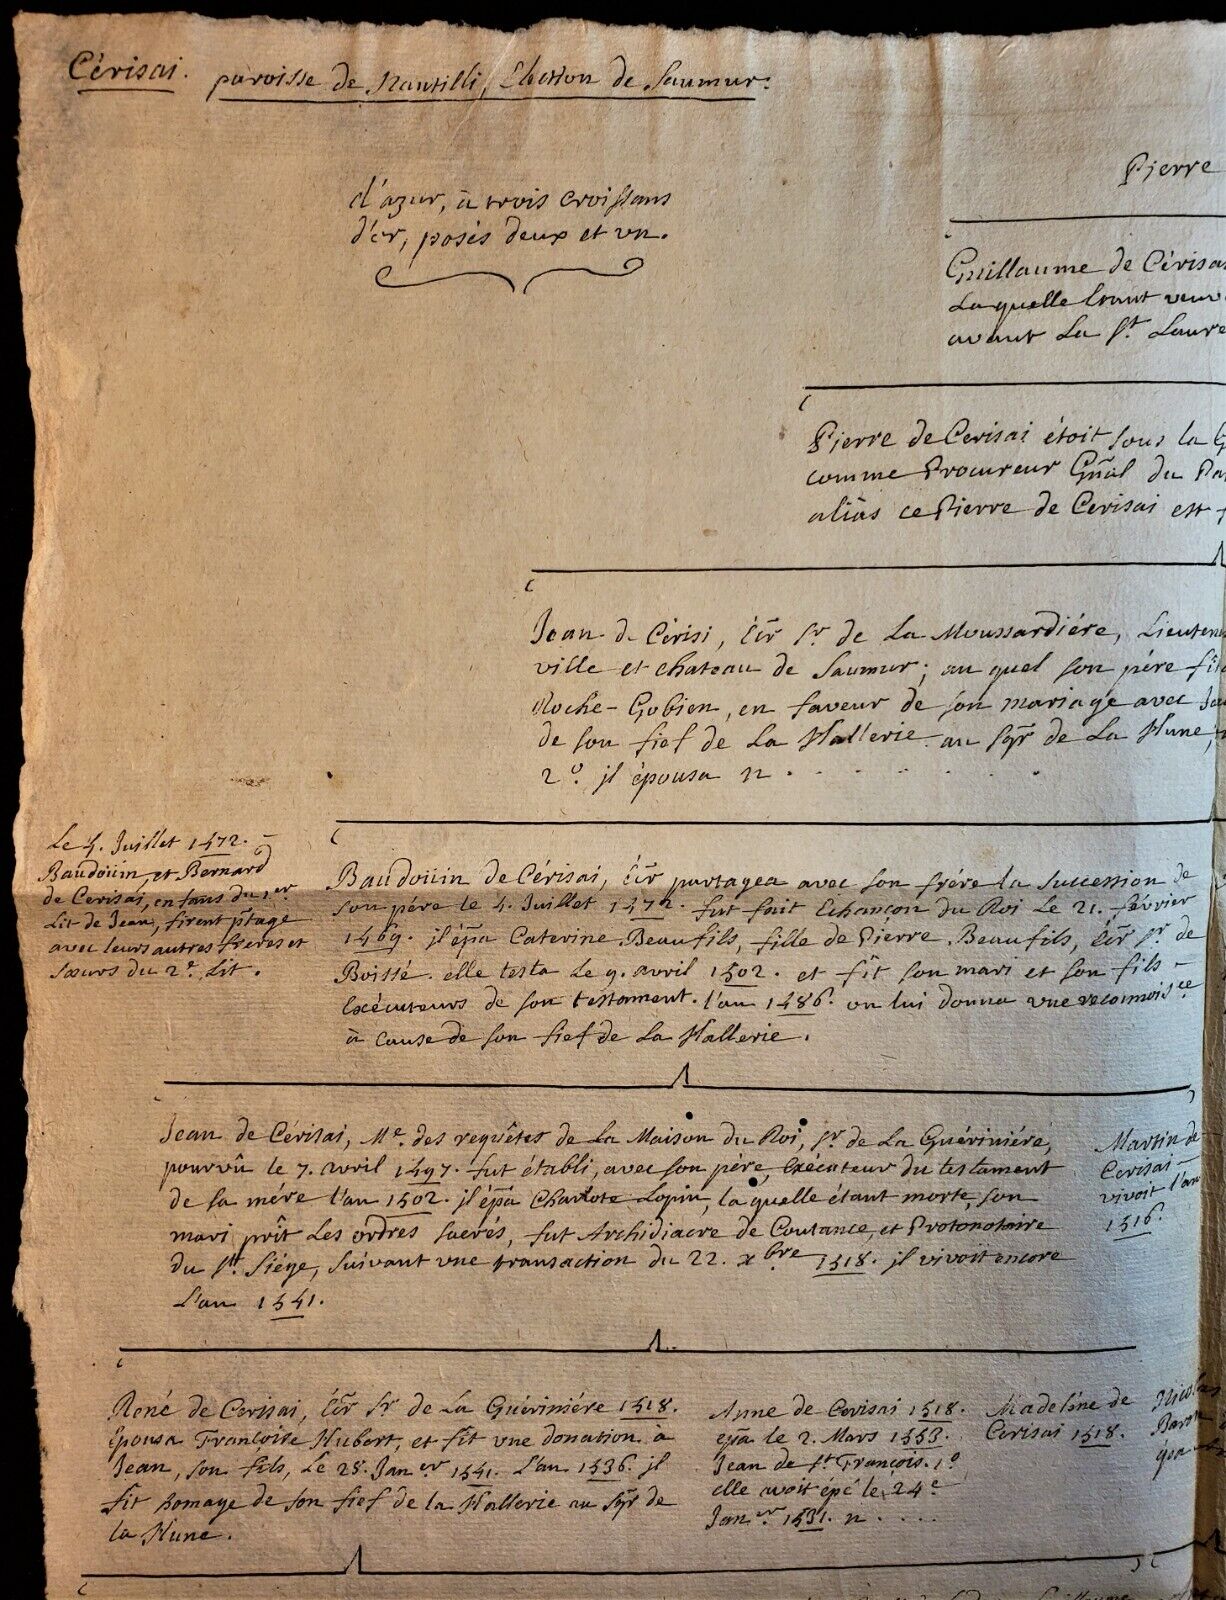 Cérisai. paroisse de Nantilli, Election de Saumur.
d'azur, à trois croissans
d'or, posés deux et un.
Pierre
Guillaume de Cérisa
Laquelle étant veuv
avant La St. Laure
Pierre de Cerisai étoit sous la G
comme Procureur Gñal du Pa
aliàs ce Pierre de Cerisai est
Jean de Cérisi, Ecr̃ Sr. de La Moussardiére, Lieuten
ville et chateau de Saumur; au quel son pére fi
Roche-Gobien, en faveur de son mariage avec
de son fief de La Hallerie au Sgr̃ de La Hune,
2º. il épousa n . . . . . .
Le 4. Juillet 1472.
Baudoüin, et Bernard
de Cerisai, enfans du 1.er
Lit de Jean, firent p̃tage
avec leurs autres freres et
sœurs du 2e. Lit.
Baudoüin de Cérisai, Ecr̃ partagea avec son frére la succession de
son pére le 4. Juillet 1472. fut fait Echançon du Roi Le 21. février
1469. il ép̃a Caterine Beaufils, fille de Pierre Beaufils, Ecr̃ Sr. de
Boissé. elle testa Le 9. avril 1502. et fit son mari et son fils -
Exécuteurs de son testament. l'an 1486. on lui donna une reconnoisce
à cause de son fief de La Hallerie.
Jean de Cérisai, Me. des requêtes de La Maison du Roi, Sr. de La Guériniére,
pourvû le 7. avril 1497. fut établi, avec son pére, Exécuteur du testament
de sa mére l'an 1502. il ép̃a Charlote Lopin, laquelle étant morte, son
mari prît Les ordres sacrés, fut Archidiacre de Coutance, et Protonotaire
du St. Siége, suivant une transaction du 22. xbre 1518. il vivoit encore
L'an 1541.
Martin de
Cerisai -
vivoit l'an
1516.
René de Cerisai, Ecr̃ Sr. de La Guériniére 1518.
épousa Françoise Hubert, et fit une donation à
Jean, son fils, Le 28. Janer 1541. L'an 1536. il
fit homage de son fief de la Hallerie au Sgr̃ de
la Hune.
Anne de Cerisai 1518.
ep̃a le 2. Mars 1553.
Jean de St. François. 1º
elle avoit épé le 24e
Janer. 1531. n . . . .
Madeléne de
Cerisai 1518.
Nicolas
Baron